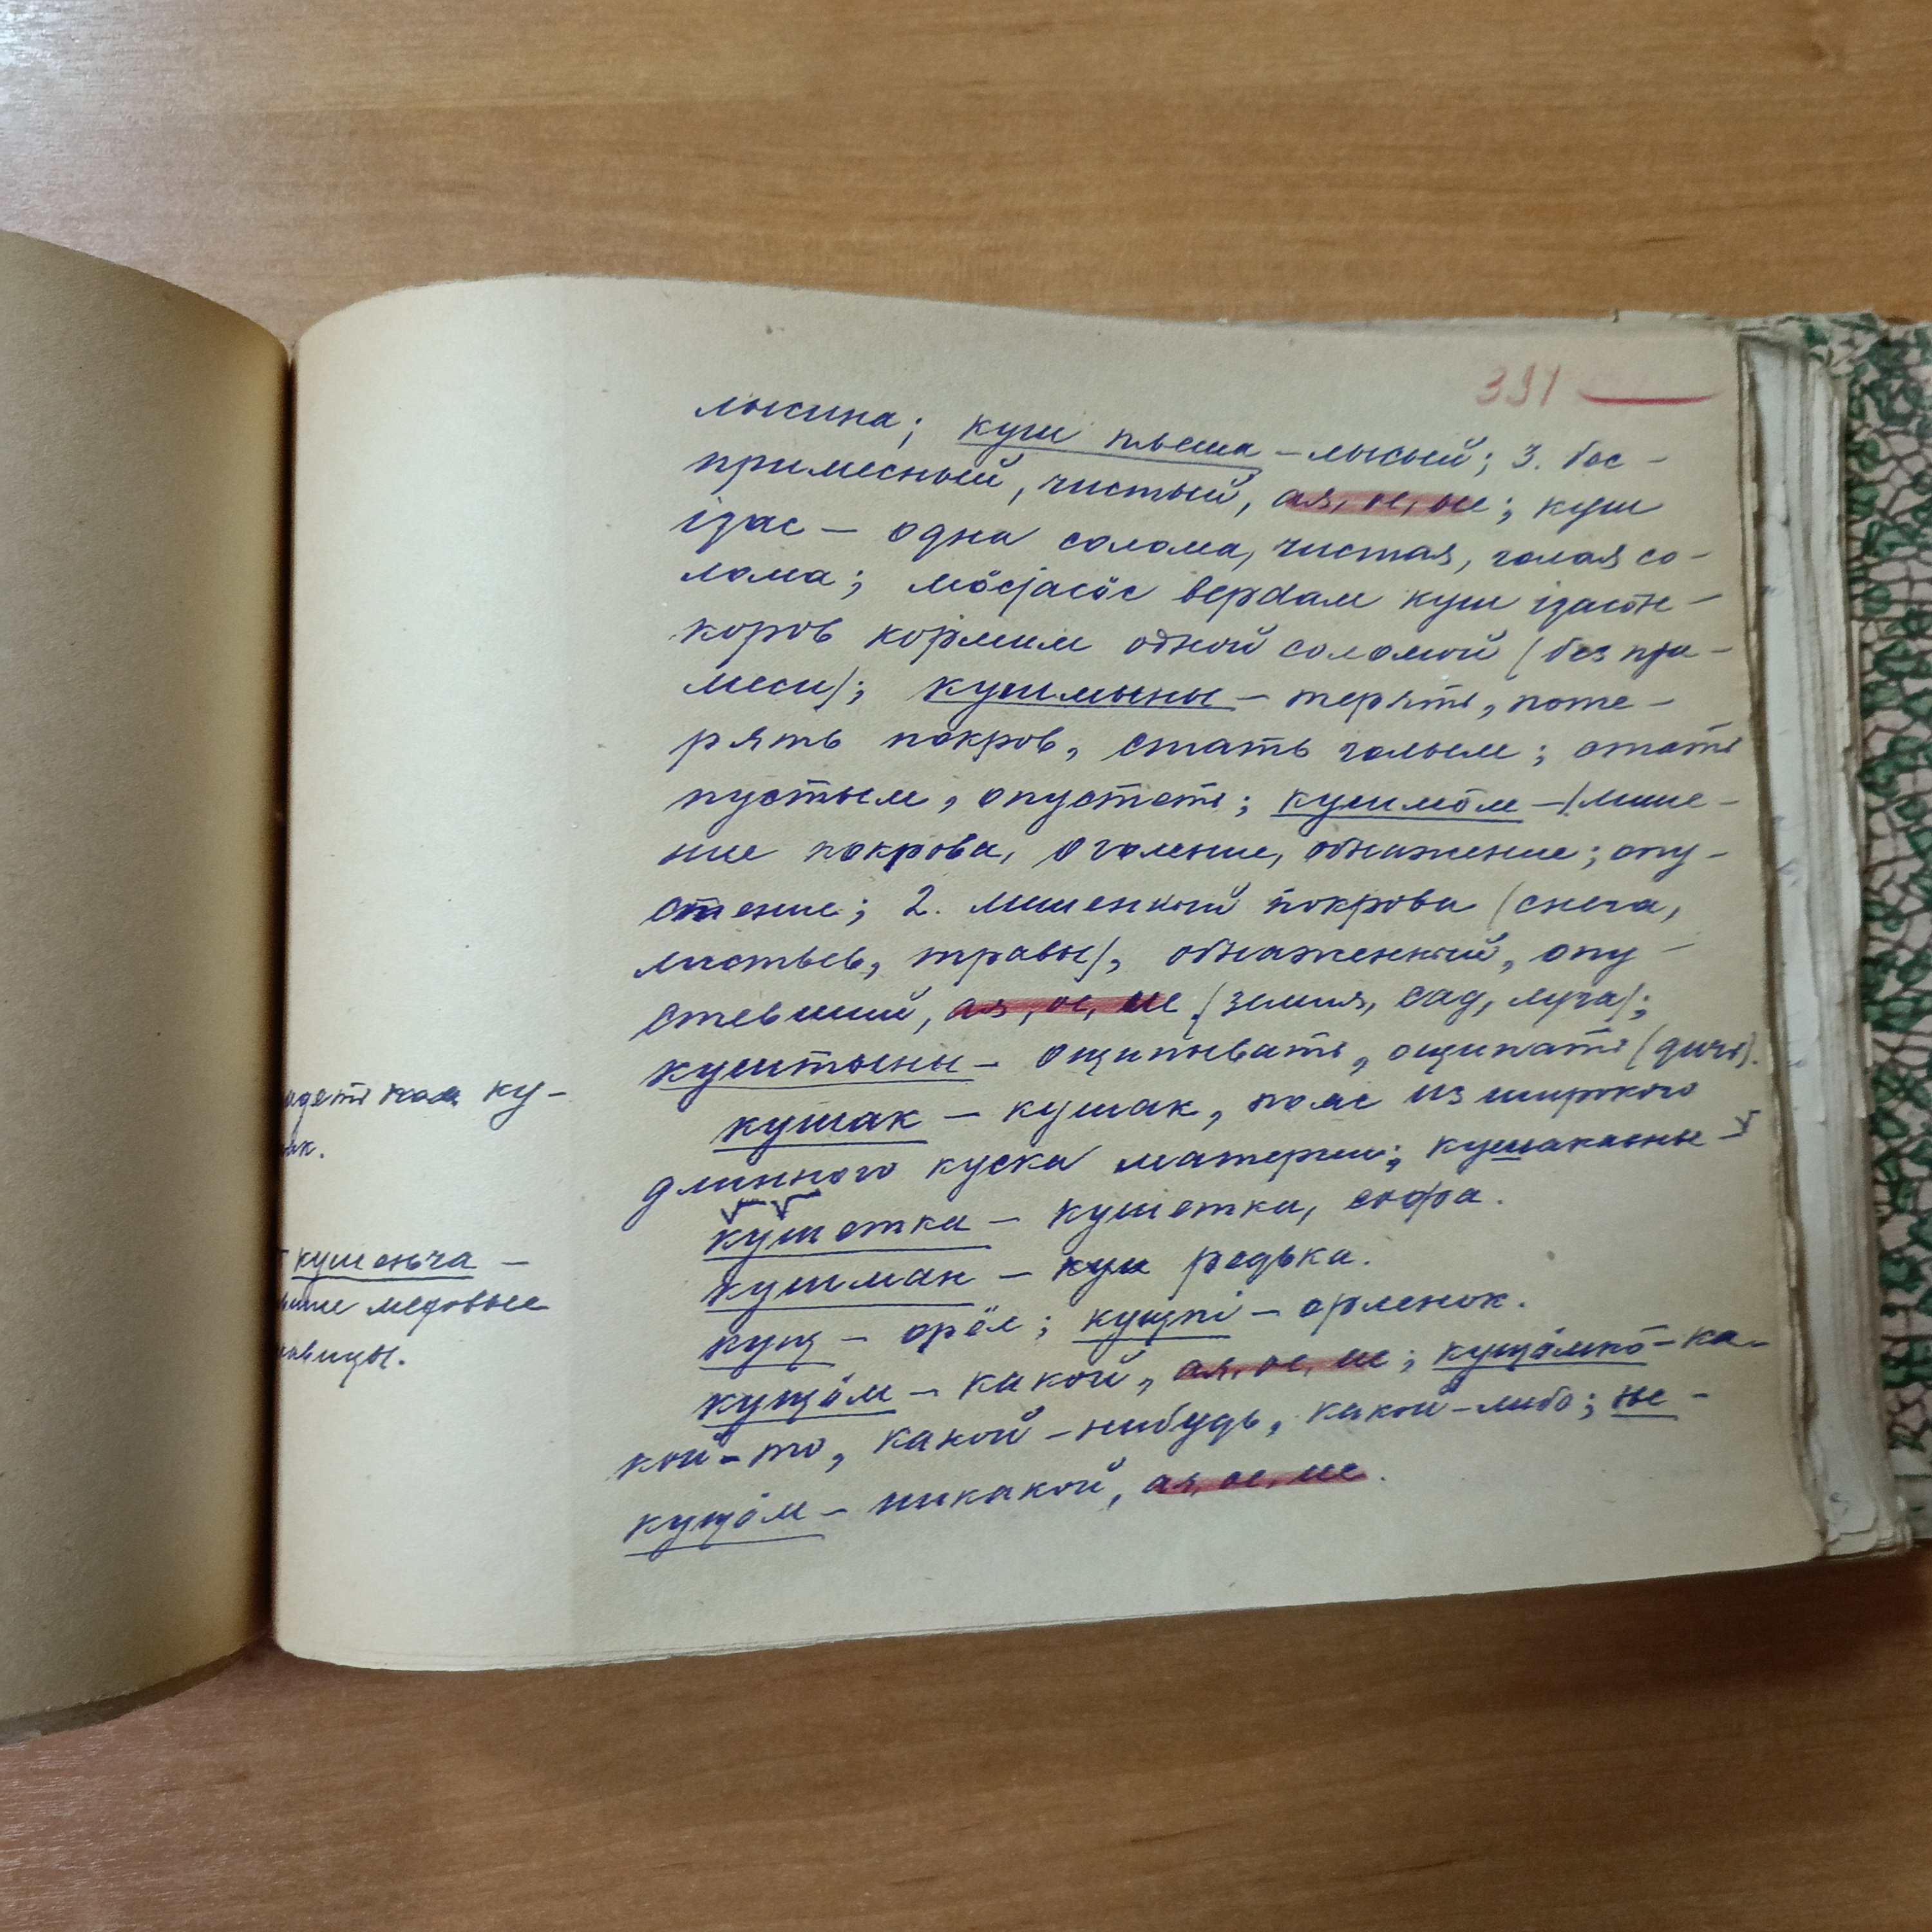 391
лысина; куш плеша – лысый; 3. бес-
примесный, чистый, ая, ое, ые; куш
ізас – одна солома, чистая, голая со-
лома; мӧсјасӧс вердам куш ізасӧн –
коров кормим одной соломой (без при-
меси); кушмыны – терять, поте-
рять покров, стать голым; стать
пустым, опустеть; кушмӧм – (лише-
ние покрова, оголение, обнажение; опу-
стение; 2. лишенный покрова (снега,
листьев, травы), обнаженный, опу-
стевший, ая, ое, ие (земля, сад, луга);
куштыны – ощипывать, ощипать (дичь).
кушак – кушак, пояс из широкого
длинного куска материи; кушакасны –
кушетка – кушетка, софа.
кушман – редька.
кущ – орёл; кущпі – орленок.
кущӧм – какой, ая, ое, ие; кущӧмкӧ – ка-
кой-то, какой-нибудь, какой-либо; не-
кущӧм – никакой, ая, ое, ие.
ку-
ак.
кушеньча –
медовые
авицы.